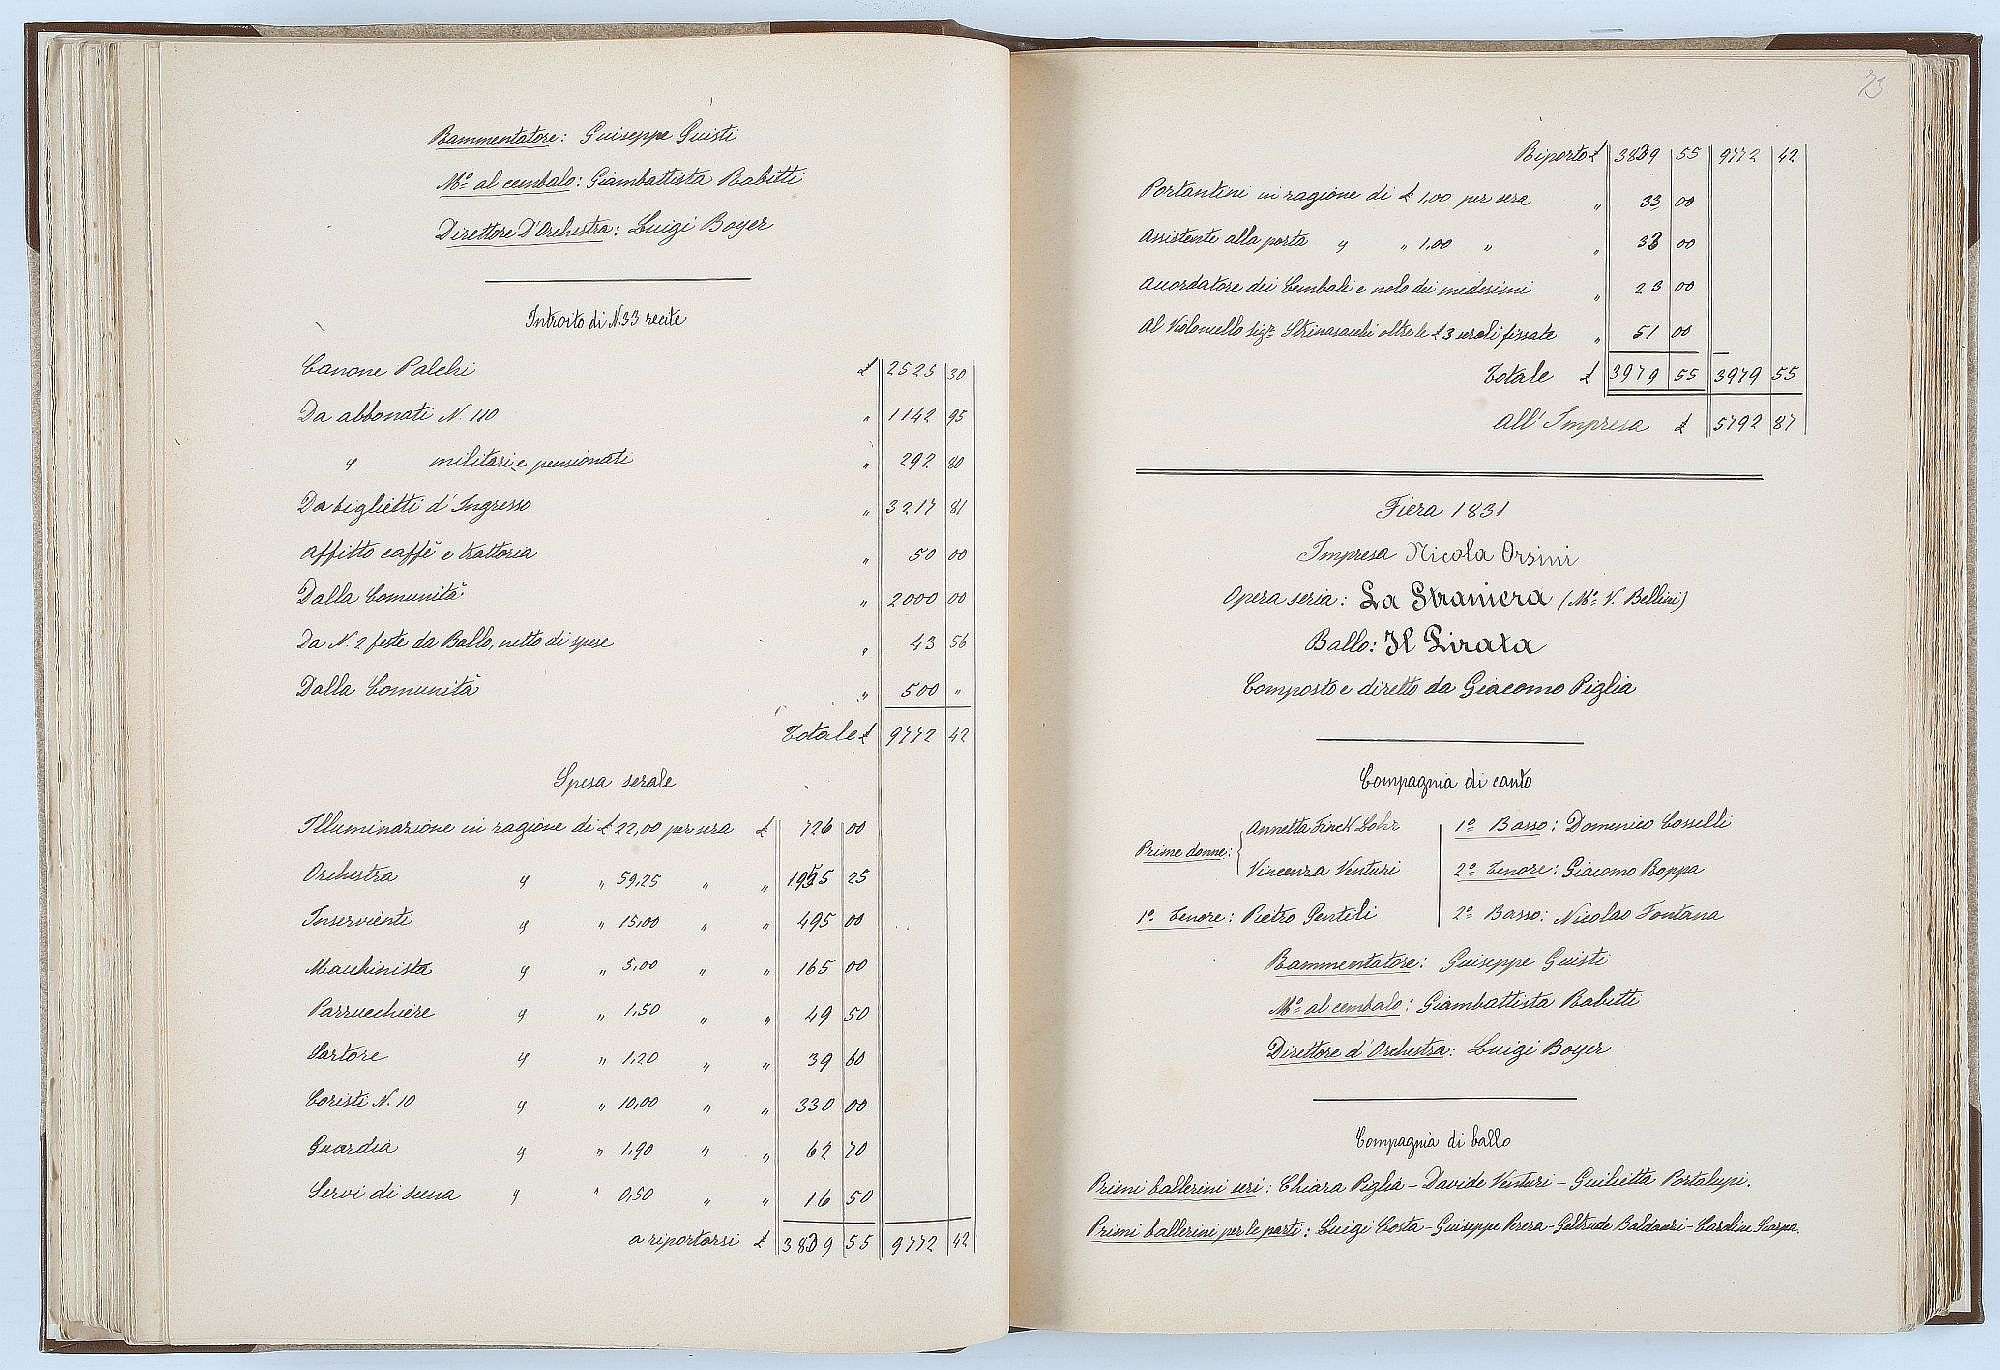 Rammentatore: Guiseppe Guisti
Mº al cembalo: Giambattista Rabitti
Direttore D'Orchestra: Luigi Boyer
Introito di N. 33 recite
Canone Palchi £ 2525 30
Da abbonati N. 110 " 1142 95
" militari e pensionati " 292 80
Da biglietti d'Ingresso " 3217 81
Affitto caffè e trattoria " 50 00
Dalla Comunità " 2000 00
Da N. 2 feste da Ballo, netto di spese " 43 56
Dalla Comunità " 500 "
Totale £ 9772 42
Spesa serale
Illuminazione in ragione di £ 22,00 per sera £ 726 00
Orchestra " " 59,25 " " 1955 25
Inservienti " " 15,00 " " 495 00
Macchinista " " 5,00 " " 165 00
Parrucchiere " " 1,50 " " 49 50
Sartore " " 1,20 " " 39 60
Coristi N. 10 " " 10,00 " " 330 00
Guardia " " 1,90 " " 62 70
Servi di scena " " 0,50 " " 16 50
a riportarsi £ 3839 55 9772 42
23
Riporto £ 3839 55 9772 42
Portantini in ragione di £ 1,00 per sera " 33 00
Assistente alla porta " " 1,00 " " 33 00
Accordatore dei Cembali e nolo dei medesimi " 23 00
Al Violoncello Sigr. oltre le £ 3 serali fissate " 51 00
Totale £ 3979 55 3979 55
All'Impresa £ 5792 87
Fiera 1831
Impresa Nicola Orsini
Opera seria: La Straniera (Mº V. Bellini)
Ballo: Il Pirata
Composto e diretto da Giacomo Piglia
Compagnia di canto
Prime donne: Annetta Finck Lohr
Vincenza Venturi
1º Tenore: Pietro Gentili
1º Basso: Domenico Cosselli
2º Tenore: Giacomo Roppa
2º Basso: Nicolao Fontana
Rammentatore: Guiseppe Guisti
Mº al cembalo: Giambattista Rabitti
Direttore d'Orchestra: Luigi Boyer
Compagnia di ballo
Primi ballerini seri: Chiara Piglia - Davide Venturi - Guilietta Portalupi.
Primi ballerini per le parti: Luigi Costa - Guiseppe Perera - Geltrude Baldanzi - Carolina Scarpa.